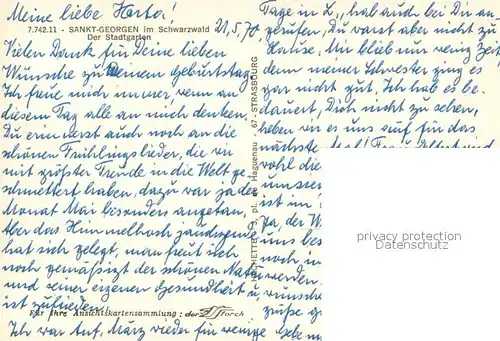 Meine liebe Harto!
7.742.11 - SANKT-GEORGEN im Schwarzwald
Der Stadtgarten
21.5.70
Vielen Dank für Deine lieben
Wünsche zu Deinem Geburtstag
Ich freue mich immer, wenn an
diesem Tag alle an mich denken.
Du erinnerst auch noch an die
schönen Frühlingslieder, die wir
mit größter Freude in die Welt ge-
schmettert haben, dazu war ja der
Monat Mai besonders angetan,
Aber das Himmelhoch jauchzende
hat sich gelegt, man freut sich
noch gemäßigt der schönen Natur
und seiner eigenen Gesundheit u.
ist zufrieden.
Für Ihre Ansichtskartensammlung: der Storch
Ich war Anf. März wieder für wenige
pl. de Haguenau - 67 - STRASBOURG
Tage in L., hab auch bei Dir an-
gerufen, Du warst aber nicht zu
Hause. Mir blieb nur wenig Zeit
denn meiner Schwester ging es
gar nicht gut. Ich hab es be-
dauert, Dich nicht zu sehen,
heben wir es uns auf für das
nächste
wohl die
unsere
ist
Ja, der W
uns bes
noch in
werden,
wünsche
Grüße
privacy protection
Datenschutz